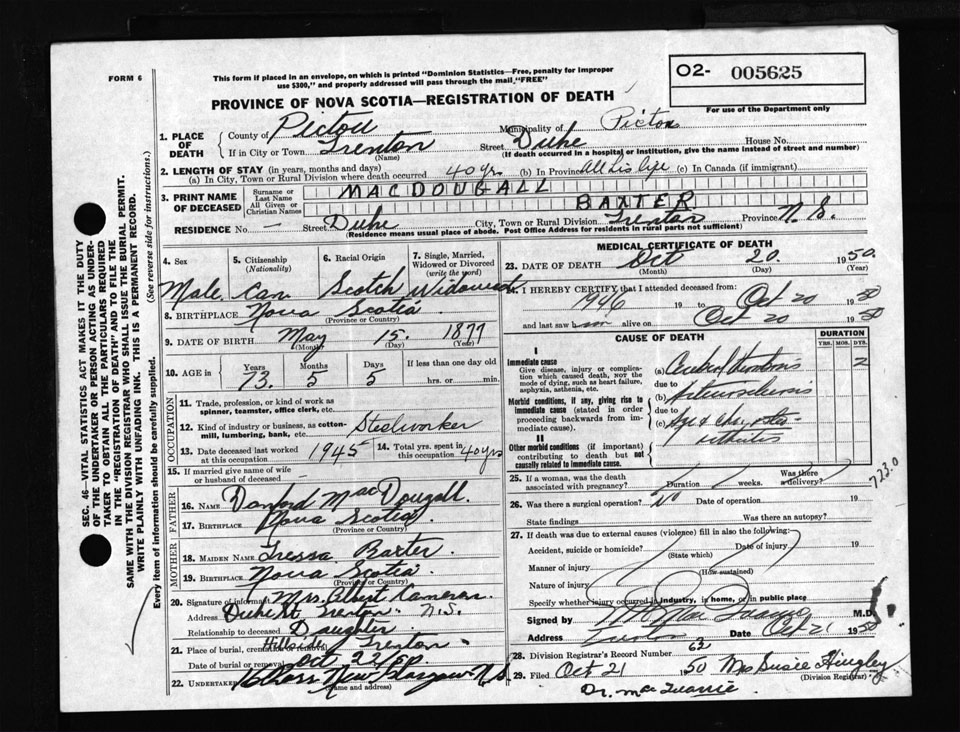 FORM 6
This form if placed in an envelope, on which is printed "Dominion Statistics—Free, penalty for improper
use $300," and properly addressed will pass through the mail, "FREE"
O2- 005625
For use of the Department only
PROVINCE OF NOVA SCOTIA—REGISTRATION OF DEATH
1. PLACE OF DEATH
County of Pictou Municipality of Pictou
If in City or Town Trenton (Name) Street Duke House No.
(If death occurred in a hospital or institution, give the name instead of street and number)
2. LENGTH OF STAY (in years, months and days)
(a) In City, Town or Rural Division where death occurred 40 yrs (b) In Province All his life (c) In Canada (if immigrant)
3. PRINT NAME OF DECEASED
Surname or Last Name MACDOUGALL
All Given or Christian Names BAXTER
RESIDENCE No. — Street Duke City, Town or Rural Division Trenton Province N. S.
(Residence means usual place of abode. Post Office Address for residents in rural parts not sufficient)
4. Sex Male
5. Citizenship (Nationality) Can
6. Racial Origin Scotch
7. Single, Married, Widowed or Divorced (write the word) Widowed
8. BIRTHPLACE Nova Scotia
(Province or Country)
9. DATE OF BIRTH May 15 1877
(Month) (Day) (Year)
10. AGE in Years 73 Months 5 Days 5 If less than one day old hrs. or min.
OCCUPATION
11. Trade, profession, or kind of work as spinner, teamster, office clerk, etc.
12. Kind of industry or business, as cotton-mill, lumbering, bank, etc. Steelworker
13. Date deceased last worked at this occupation 1945
14. Total yrs. spent in this occupation 40 yrs
15. If married give name of wife or husband of deceased
FATHER
16. NAME MacDougall
17. BIRTHPLACE Nova Scotia
(Province or Country)
MOTHER
18. MAIDEN NAME Tressa Baxter
19. BIRTHPLACE Nova Scotia
(Province or Country)
20. Signature of informant Mrs. Albert Cameron
Address Duke St Trenton N.S.
Relationship to deceased Daughter
21. Place of burial, cremation or removal Hillside / Trenton
Date of burial or removal Oct 22/50
22. Undertaker New Glasgow N.S.
(Name and address)
MEDICAL CERTIFICATE OF DEATH
23. DATE OF DEATH Oct 20 1950
(Month) (Day) (Year)
24. I HEREBY CERTIFY that I attended deceased from:
1946 19 to Oct 20 1950
and last saw him alive on Oct 20 1950
CAUSE OF DEATH
DURATION
YRS. MOS. DYS.
I
Immediate cause
Give disease, injury or complication which caused death, not the mode of dying, such as heart failure, asphyxia, asthenia, etc.
(a) Cerebral thrombosis 2
due to
Morbid conditions, if any, giving rise to immediate cause (stated in order proceeding backwards from immediate cause).
(b) Arteriosclerosis
due to
(c) Age & Chr. osteo-arthritis
II
Other morbid conditions (if important) contributing to death but not causally related to immediate cause.
723.0
25. If a woman, was the death associated with pregnancy? Duration weeks. Was there a delivery?
26. Was there a surgical operation? No Date of operation 19
State findings Was there an autopsy?
27. If death was due to external causes (violence) fill in also the following:
Accident, suicide or homicide? Date of injury 19
(State which)
Manner of injury
(How sustained)
Nature of injury
Specify whether injury occurred in industry, in home, or in public place
Signed by M.D.
Address Trenton Date Oct 21 1950
28. Division Registrar's Record Number 62
29. Filed Oct 21 1950 Mrs Susie Hingley
(Division Registrar)
Dr. MacQuarrie
SEC. 46—VITAL STATISTICS ACT MAKES IT THE DUTY
OF THE UNDERTAKER OR PERSON ACTING AS UNDER-
TAKER TO OBTAIN ALL THE PARTICULARS REQUIRED
IN THE "REGISTRATION OF DEATH" AND TO FILE THE
SAME WITH THE DIVISION REGISTRAR WHO SHALL ISSUE THE BURIAL PERMIT.
WRITE PLAINLY WITH UNFADING INK. THIS IS A PERMANENT RECORD.
Every item of information should be carefully supplied. (See reverse side for instructions.)